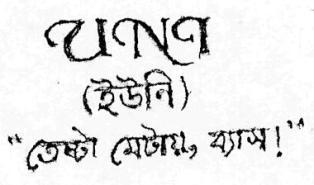 (ইউনি)
"তেষ্টা মেটায়, ব্যাস!"